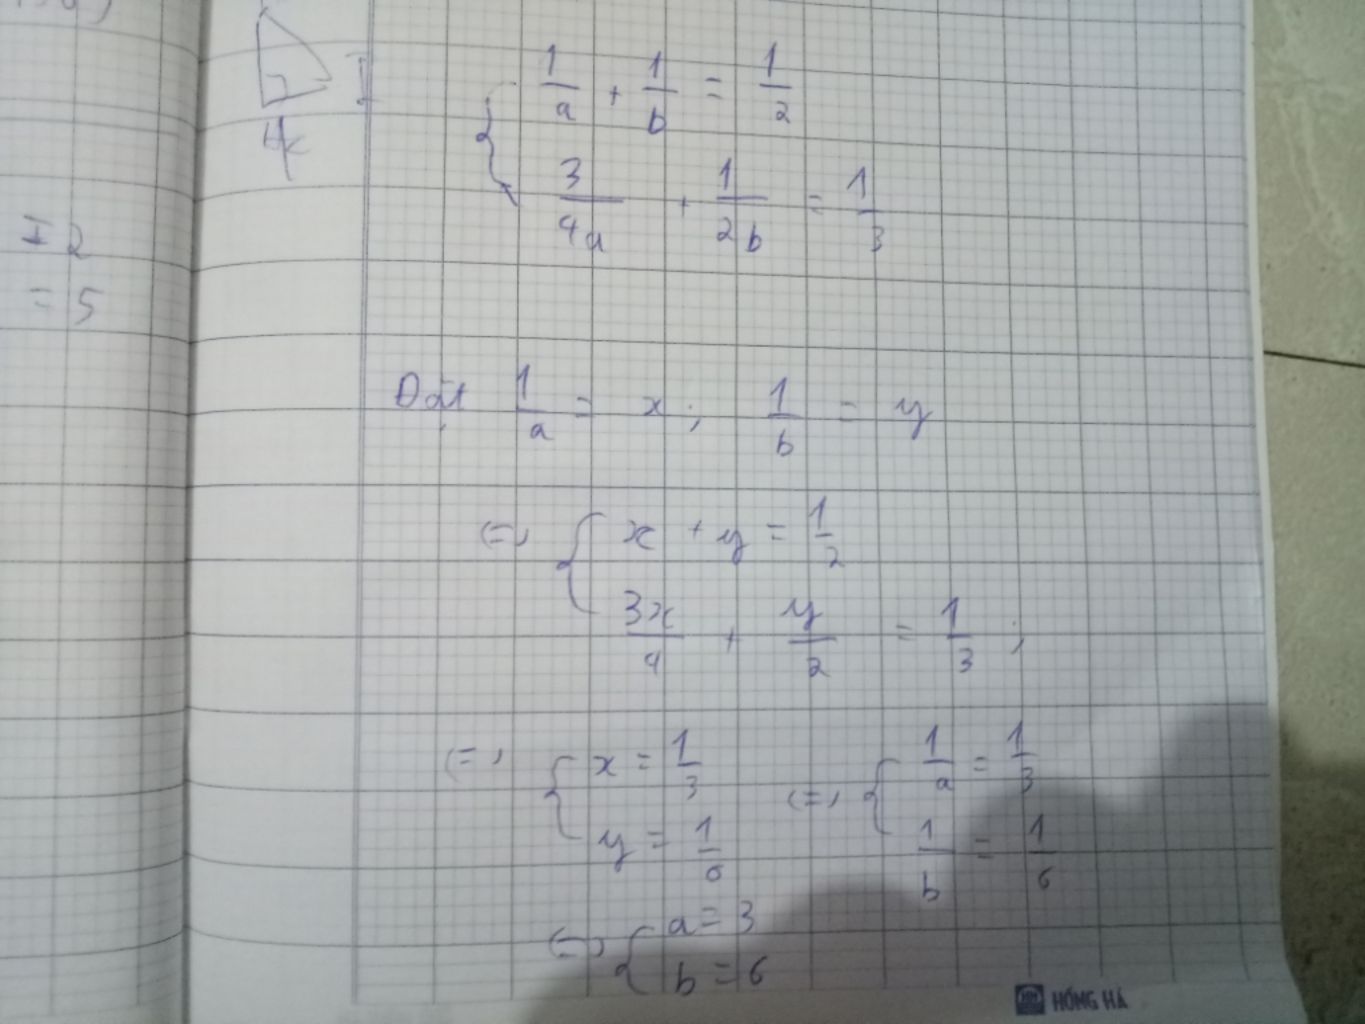 4k
+ 2
= 5
1/a + 1/b = 1/2
3/4a + 1/2b = 1/3
Đặt 1/a = x; 1/b = y
(=) { x + y = 1/2
3x/4 + y/2 = 1/3 ;
(=) { x = 1/3 (=) { 1/a = 1/3
y = 1/6 1/b = 1/6
(=) { a = 3
b = 6
HỒNG HÀ